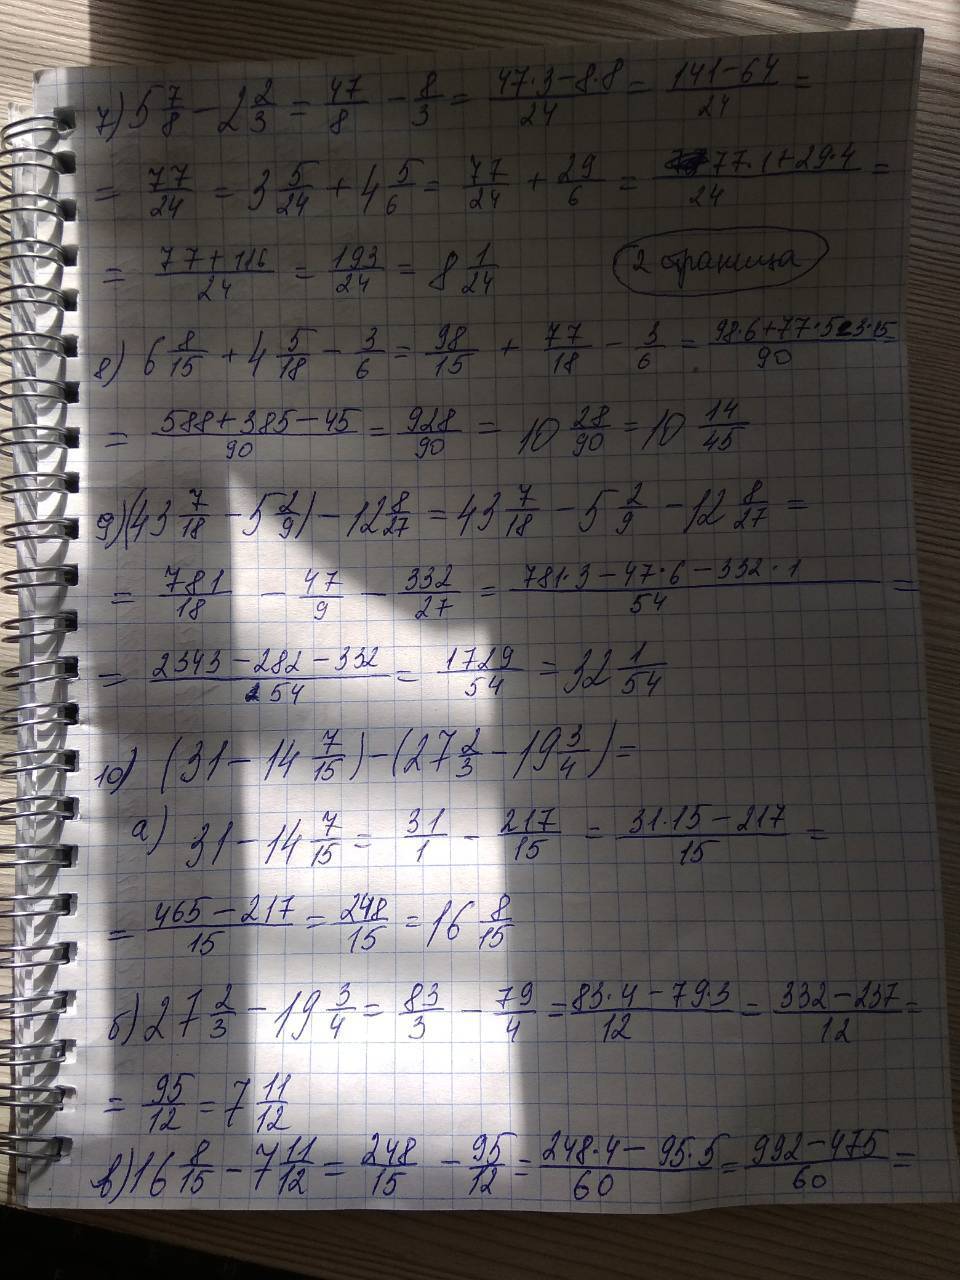 7) 5 7/8 - 2 2/3 = 47/8 - 8/3 = (47·3-8·8)/24 = (141-64)/24 =
= 77/24 = 3 5/24 + 4 5/6 = 77/24 + 29/6 = (77·1+29·4)/24 =
= (77+116)/24 = 193/24 = 8 1/24
2 страница
8) 6 8/15 + 4 5/18 - 3/6 = 98/15 + 77/18 - 3/6 = (98·6+77·5-3·15)/90 =
= (588+385-45)/90 = 928/90 = 10 28/90 = 10 14/45
9) (43 7/18 - 5 2/9) - 12 8/27 = 43 7/18 - 5 2/9 - 12 8/27 =
= 781/18 - 47/9 - 332/27 = (781·3-47·6-332·1)/54 =
= (2343-282-332)/54 = 1729/54 = 32 1/54
10) (31 - 14 7/15) - (27 2/3 - 19 3/4) =
а) 31 - 14 7/15 = 31/1 - 217/15 = (31·15-217)/15 =
= (465-217)/15 = 248/15 = 16 8/15
б) 27 2/3 - 19 3/4 = 83/3 - 79/4 = (83·4-79·3)/12 = (332-237)/12 =
= 95/12 = 7 11/12
в) 16 8/15 - 7 11/12 = 248/15 - 95/12 = (248·4-95·5)/60 = (992-475)/60 =